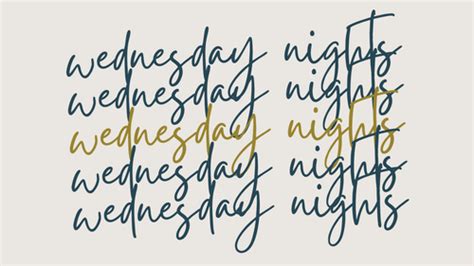 wednesday nights
wednesday nights
wednesday nights
wednesday nights
wednesday nights